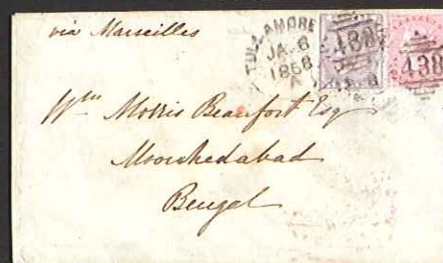 via Marseilles
TULLAMORE
JA 6
1858
A
438
438
Wm Morris Beaufort Esq
Moorshedabad
Bengal